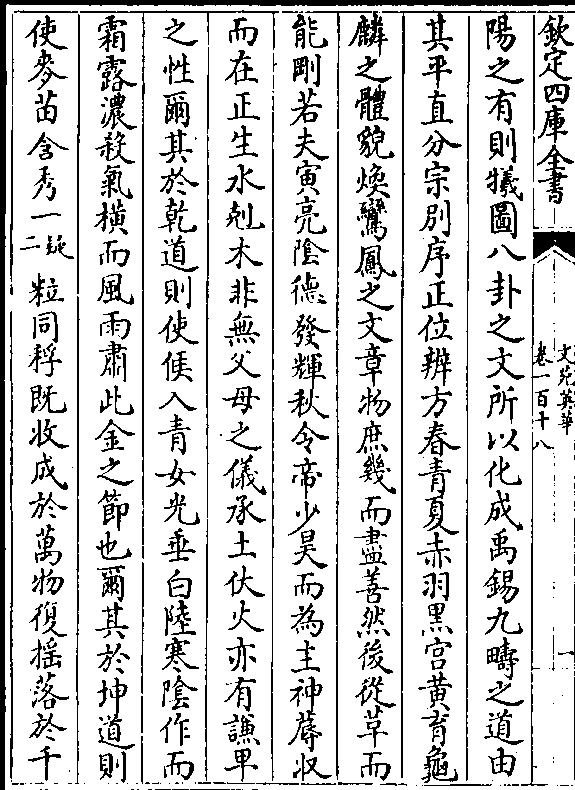 欽定四庫全書
文苑英華
卷一百十八
一
陽之有則犧圖八卦之文所以化成禹錫九疇之道由
其平直分宗别序正位辨方春青夏赤羽黒宫黄育龜
麟之體貌煥鸞鳳之文章物庶幾而盡善然後從革而
能剛若夫寅亮陰德發輝秋令帝少昊而為主神蓐收
而在正生水剋木非無父母之儀承土伏火亦有謙卑
之性爾其於乾道則使侯入青女光垂白陸寒陰作而
霜露濃殺氣橫而風雨肅此金之節也爾其於坤道則
使麥苗含秀一疑二粒同稃既收成於萬物復揺落於千